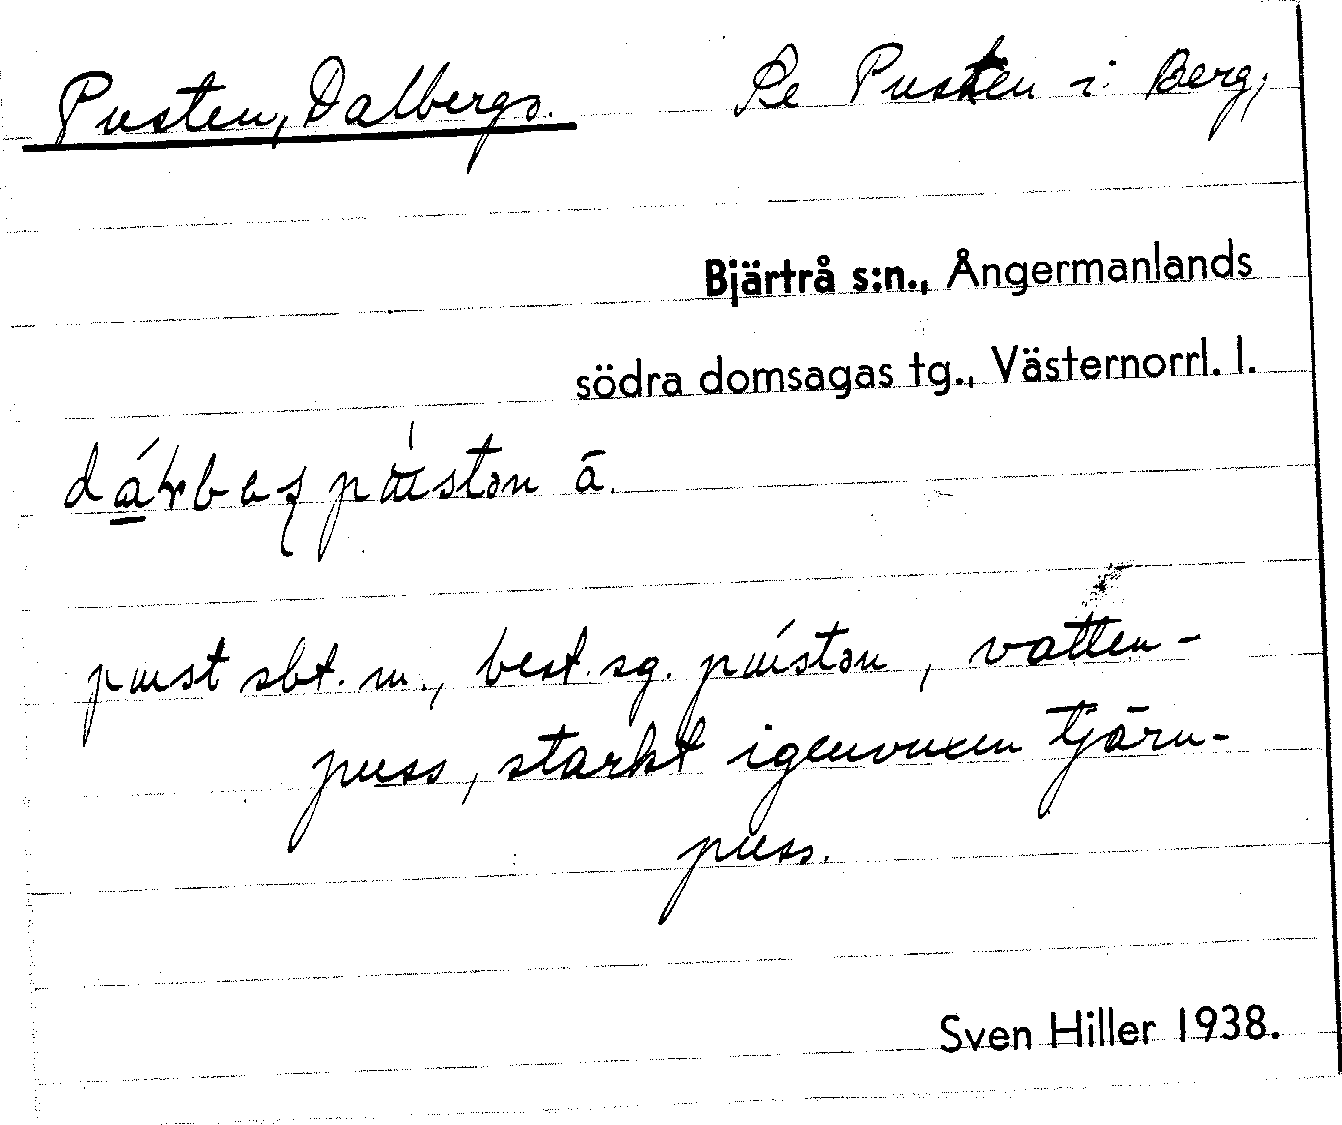 Pusten, Dalbergs. Se Pusten i Berg,
Bjärtrå s:n., Ångermanlands
södra domsagas tg., Västernorrl. l.
ā.
sbt. m., best. sg. , vatten-
puss, starkt igenvuxen tjärn-
puss.
Sven Hiller 1938.